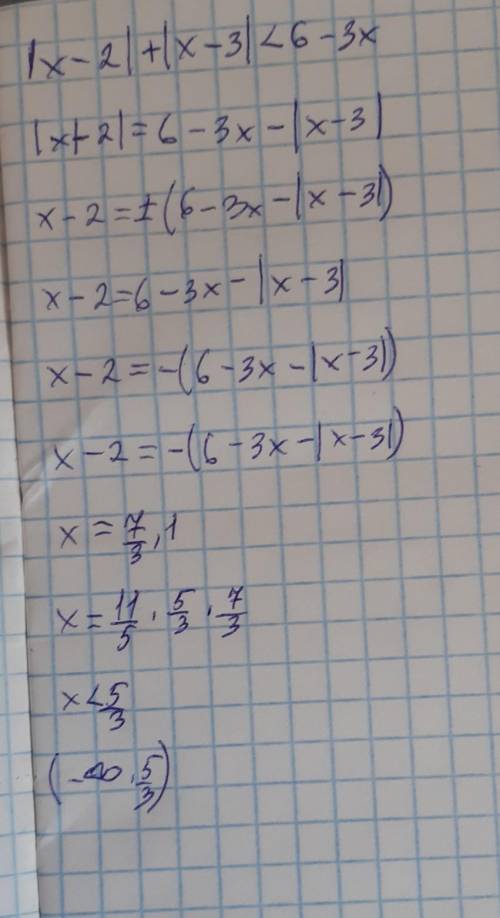 |x-2|+|x-3|<6-3x
|x-2|=6-3x-|x-3|
x-2=±(6-3x-|x-3|)
x-2=6-3x-|x-3|
x-2=-(6-3x-|x-3|)
x-2=-(6-3x-|x-3|)
x=7/3,1
x=11/5,5/3,7/3
x<5/3
(-∞,5/3)